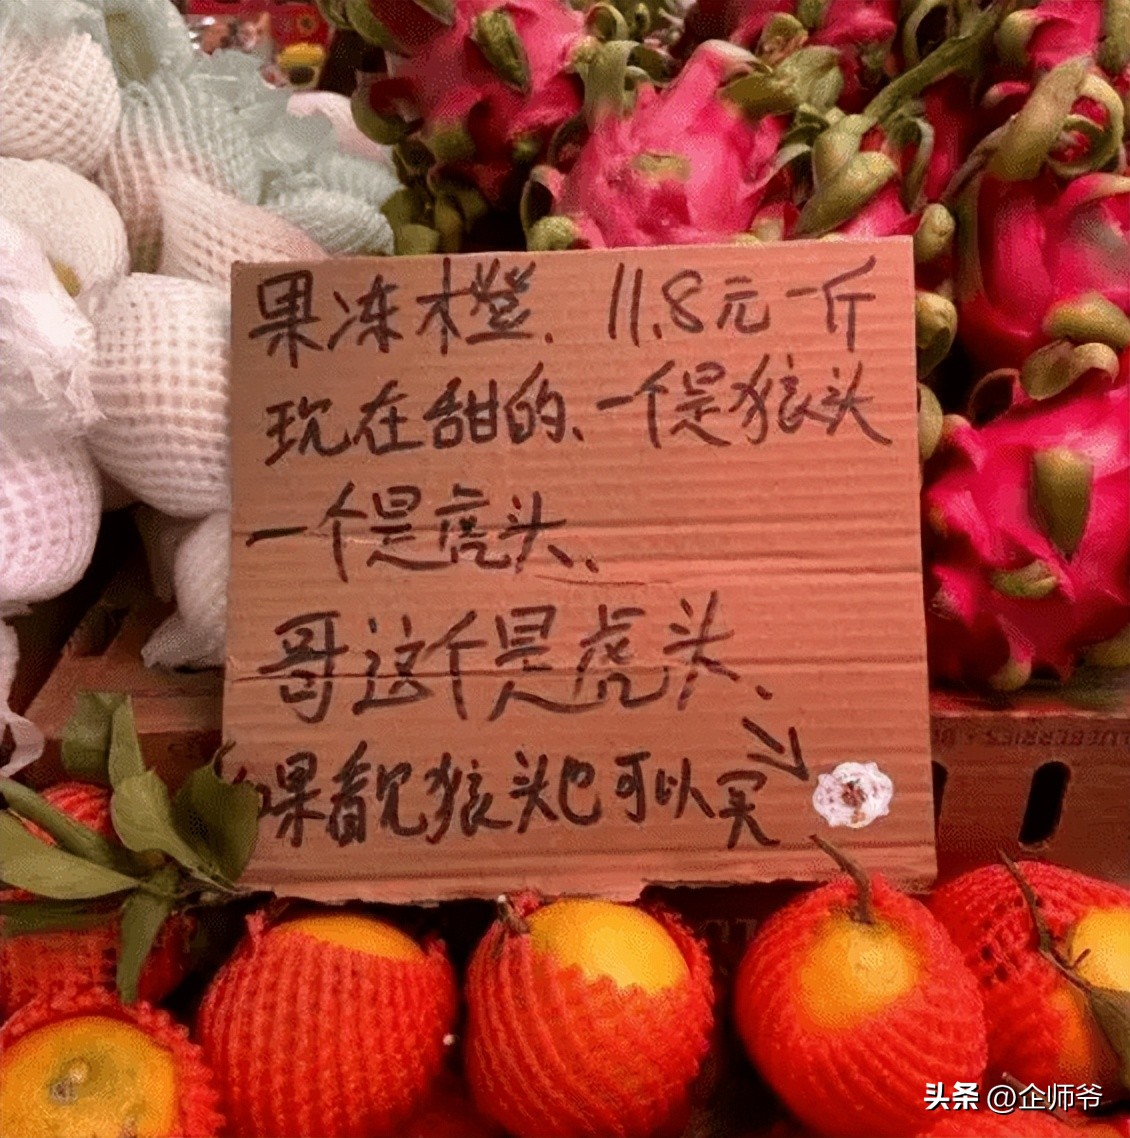 果冻橙、11.8元一斤
现在甜的、一个是狼头
一个是虎头、
哥这个是虎头、
如果看见狼头也可以买
LUEBERRIES
头条 @企师爷